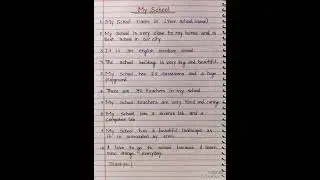 My School
1. My School name is (Your school name)
2. My School is very close to my home and is best school in our city.
3. It is an english medium school.
4. The School building is very big and beautiful.
5. My School has 25 classrooms and a large playground
6. There are 30 teachers in my school
7. My school teachers are very kind and caring
8. My School has a science lab and a computer lab
9. My School has a beautiful landscape as it is surrounded by trees.
10. I love to go to school because I learn new things everyday.
Thankyou!